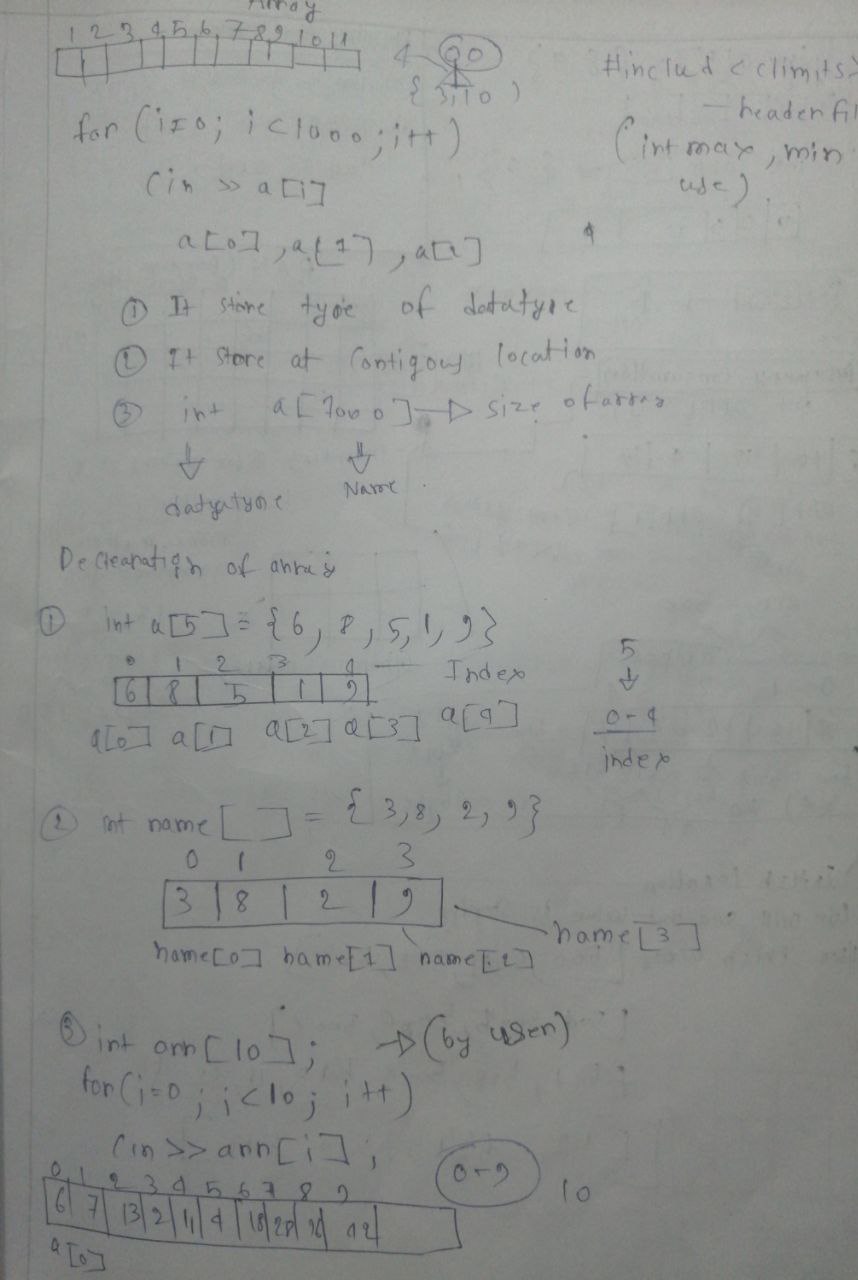 Array
1 2 3 4 5 6 7 8 9 10 11
#includ <climits>
— header fil
(int max, min
use).
{3,10}
for (i=0; i<1000; i++)
Cin >> a[i]
a[0], a[1], a[2]
① It store type of datatype
② It store at Contigous location
③ int a[1000] → size of array
datyatype Name
Declearation of array
① int a[5] = {6, 8, 5, 1, 9}
0 1 2 3 4 — Index
6 8 5 1 9
a[0] a[1] a[2] a[3] a[4]
5
0-4
index
② int name[ ] = {3, 8, 2, 9}
0 1 2 3
3 8 2 9
name[0] name[1] name[2] name[3]
③ int arr[10]; → (by user)
for (i=0; i<10; i++)
Cin >> arr[i];
0-9 10
0 1 2 3 4 5 6 7 8 9
6 7 13 2 11 4 18
a[0]